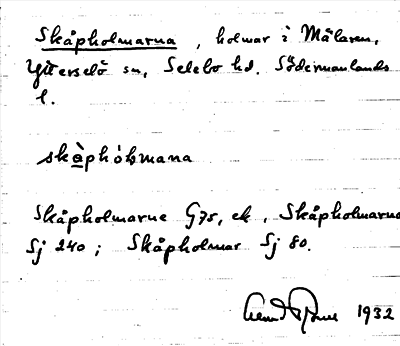 Skåpholmarna, holmar i Mälaren,
Ytterselö sn, Selebo hd. Södermanlands
l.
skå̀phòḷmana
Skåpholmarne G75, ek, Skåpholmarna
Sj 240; Skåpholmar Sj 80.
1932